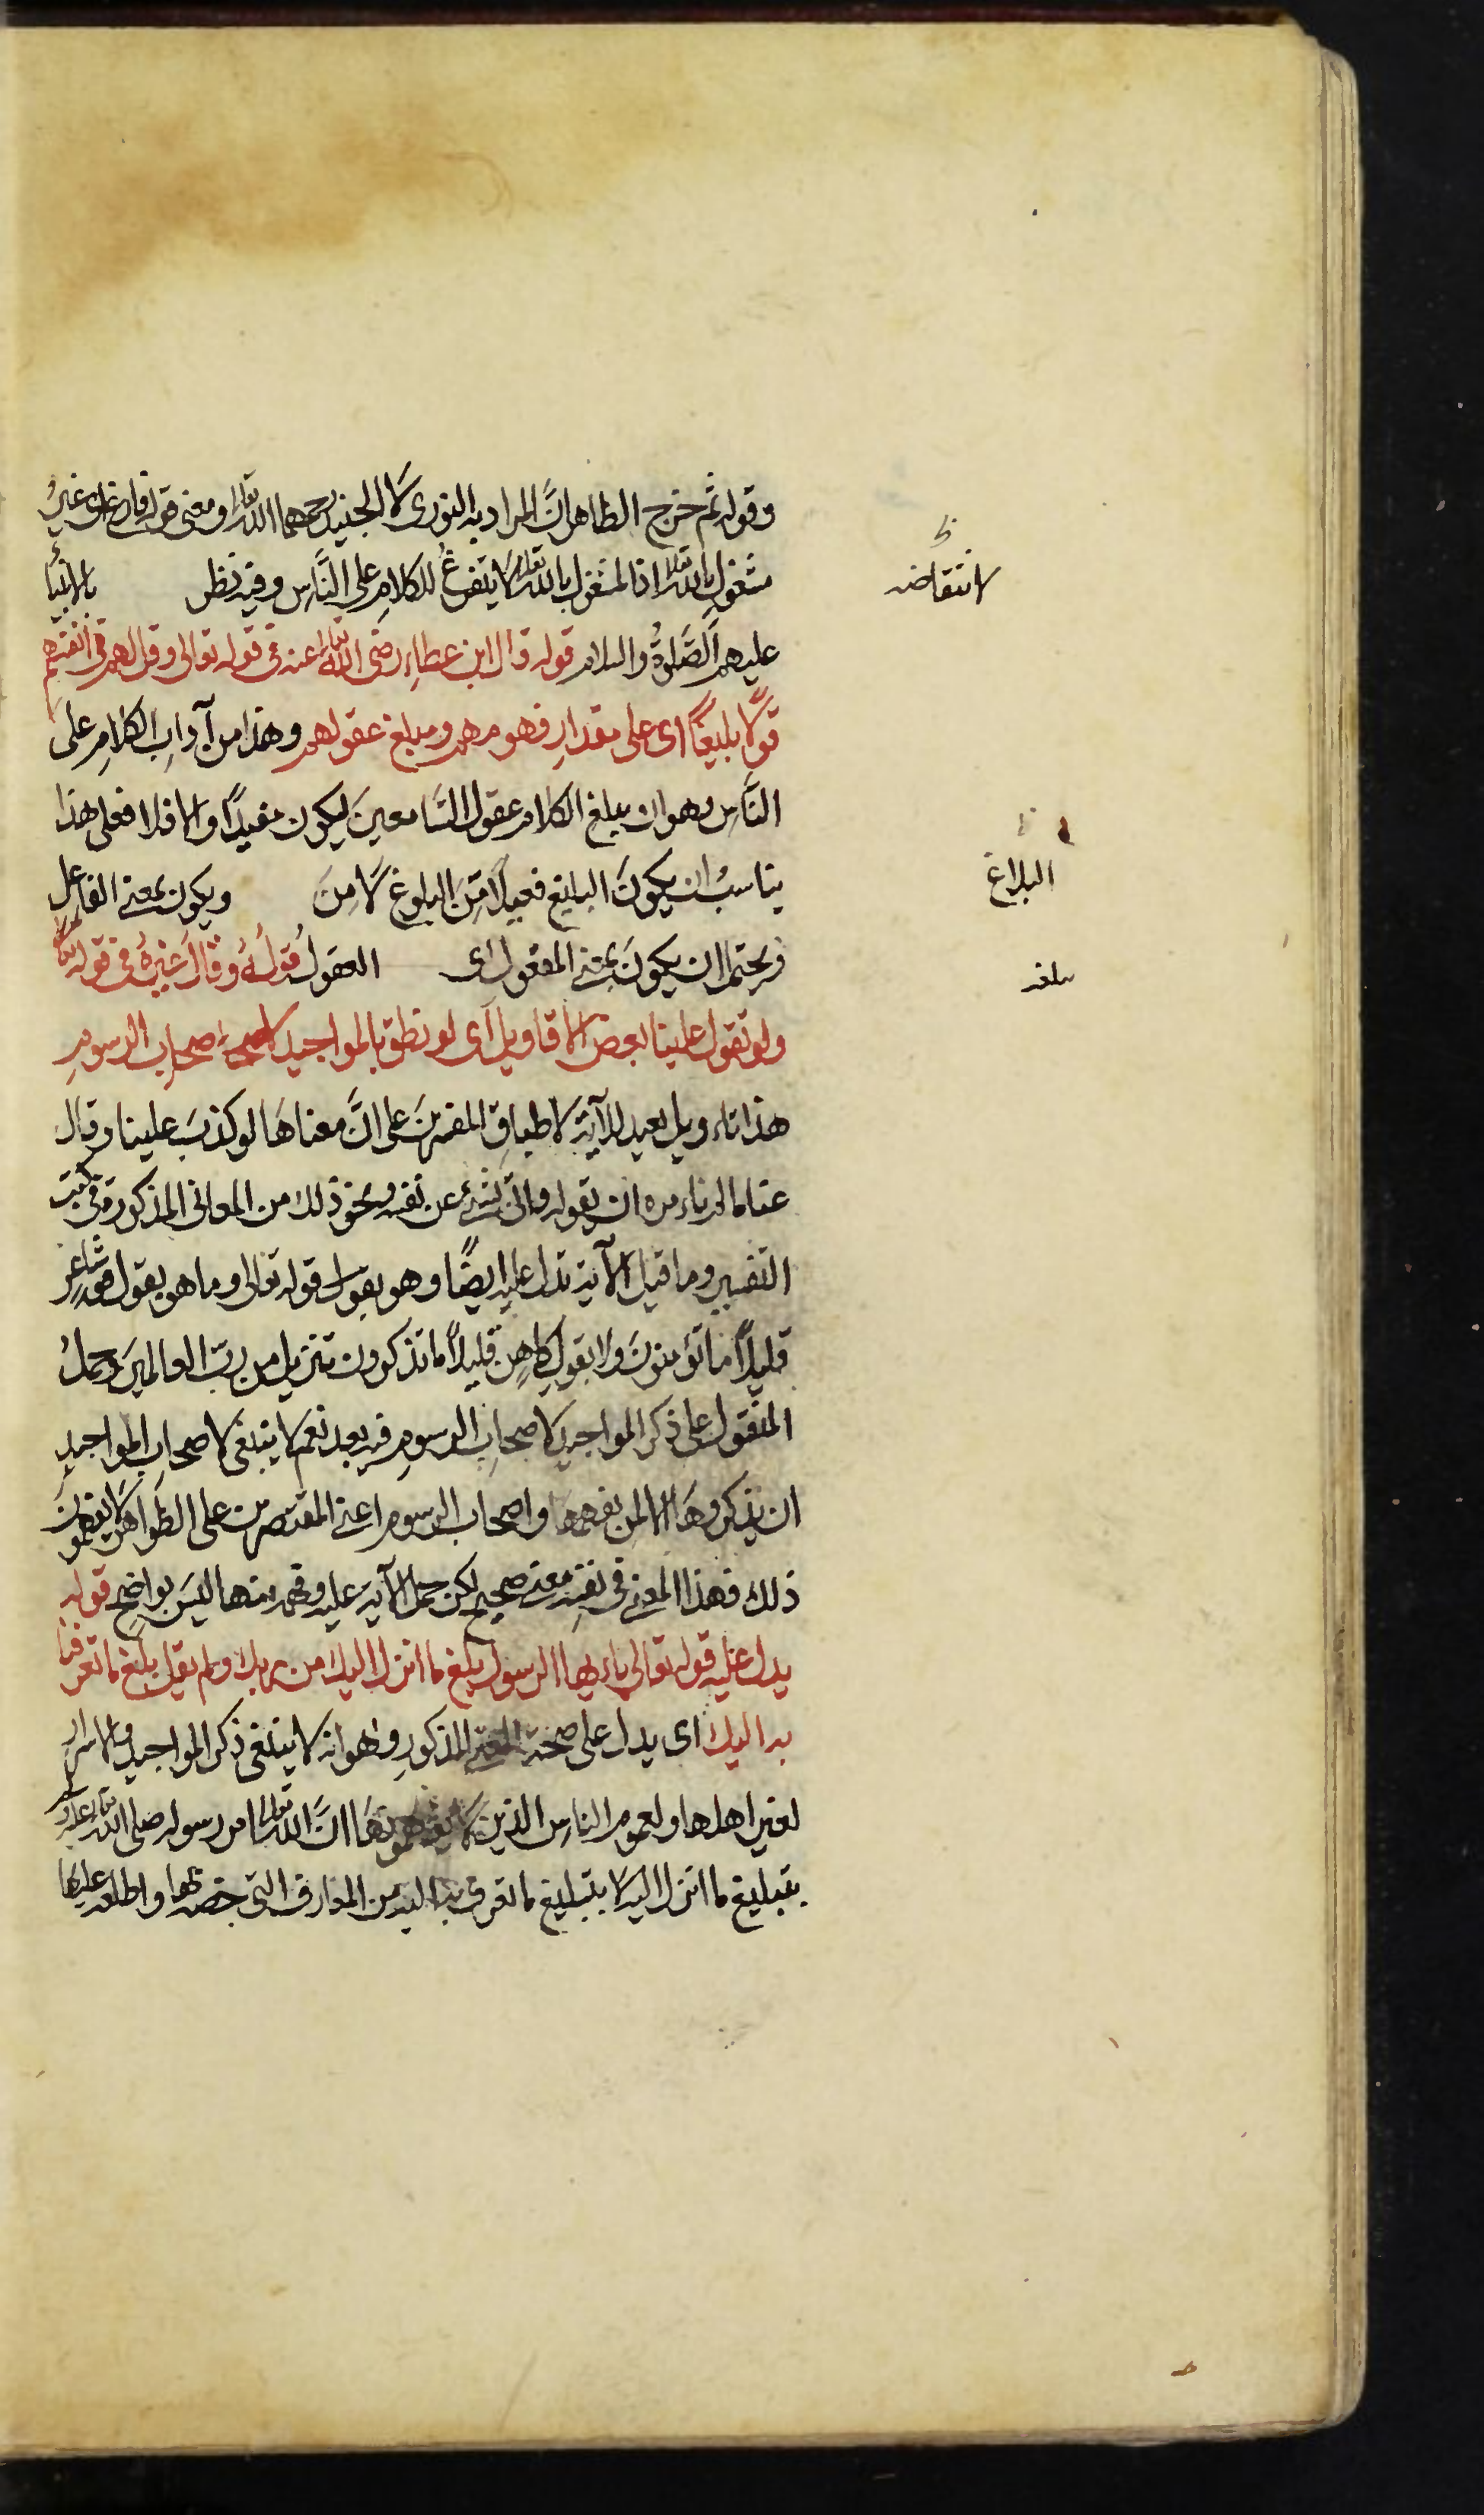 وقوله ثم خرج الظاهر انَّ المراد به النورى لا الجنيد رحمهما الله تعالى ومعنى قوله فارغ اى غيرُ
مشغولٍ بالله تعالى اذ المشغول بالله تعالى لا يتفرغُ للكلامِ على النَّاسِ وفيه نظر بالانبيآء
لانتقاضه
عليهم الصَّلوةُ والسلام قوله قال ابن عطاءٍ رضى الله تعالى عنه فى قوله تعالى وقل لهم فى انفسهم
قولًا بليغًا اى على مقدارِ فهومهم ومبلغ عقولهم وهذا من آدابِ الكلامِ على
النَّاسِ وهو ان يبلغ الكلام عقول السَّامعينَ ليكون مفيدًا والا فلا فعلى هذا
يناسبُ ان يكونَ البليغ فعيلًا مِّنَ البلوغ لَا مِنَ ويكون بمعنى الفاعل
البلاغ
ويحتمل ان يكونَ بمعنى المفعول اى العقول قولُهُ وقالَ غيرهُ فى قوله تعالى
ولو تقول علينا بعض الاقاويل آى لو نطق بالمواجيد لاصحابِ الرسومِ
هذا تاءويل بعيد للآية لاطباقِ المفسرينَ على انَّ معناهَا لو كذبَ علينا وقال
عنا ما لم ناءمره ان يقوله واتى بشىءٍ عن نفسه ونحو ذلك من المعانى المذكورة فى كتب
التفسير وما قبل الآية تدل عليه ايضًا وهو بقول قوله تعالى وما هو بقول شاعرٍ
قليلًا ما تؤمنونَ ولا بقولِ كاهنٍ قليلًا ما تذكرون تنزيل من ربّ العالمينَ وحملُ
المتقول على ذكر المواجيد لاصحابِ الرسومِ فيه بعد نعم لا ينبغى لاصحابِ المواجيدِ
ان يذكروهَا الا لمن يفهمها واصحاب الرسوم اعنى المقتصرين على الظَواهرِ لا يفهمونَ
ذلك فهذا المعنى فى نفسِه معنى صحيح لكن حمل الآيةَ عليه وفهمه منها ليسَ بواضحٍ قوله
يدل عليه قوله تعالى ياءيها الرسول بلغ ما انزل اليك من ربك ولم يقل بلّغ ما تعرفنا
به اليك اى يدل على صحة المعنى المذكورِ وهو انه لا ينبغى ذكر المواجيد والاسرار
لغير اهلها ولعموم الناسِ الذين لا يفهمونهَا انَّ الله تعالى امر رسوله صلى الله تعالى عليه وسلم
بتبليغ ما انزل اليه لا بتبليغ ما تعرف به اليه من المعارف التى خصه بها واطلعه عليها